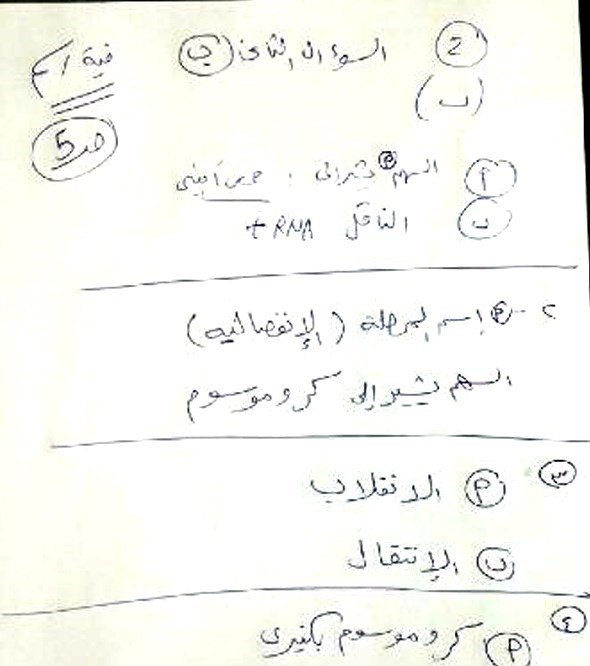 2 السؤال الثاني (ب)
(ب)
ص 5
أ السهم أ يشير الى : حمض أميني
ب الناقل t RNA
٢- أ إسم المرحلة (الإنفصالية)
السهم يشير إلى كروموسوم
٣ أ الانقلاب
ب الإنتقال
٤ أ كروموسوم بكتيري